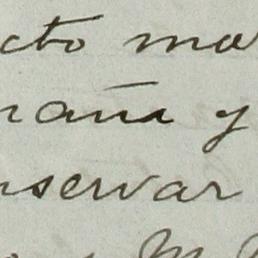 cto ma
raña y
nservar